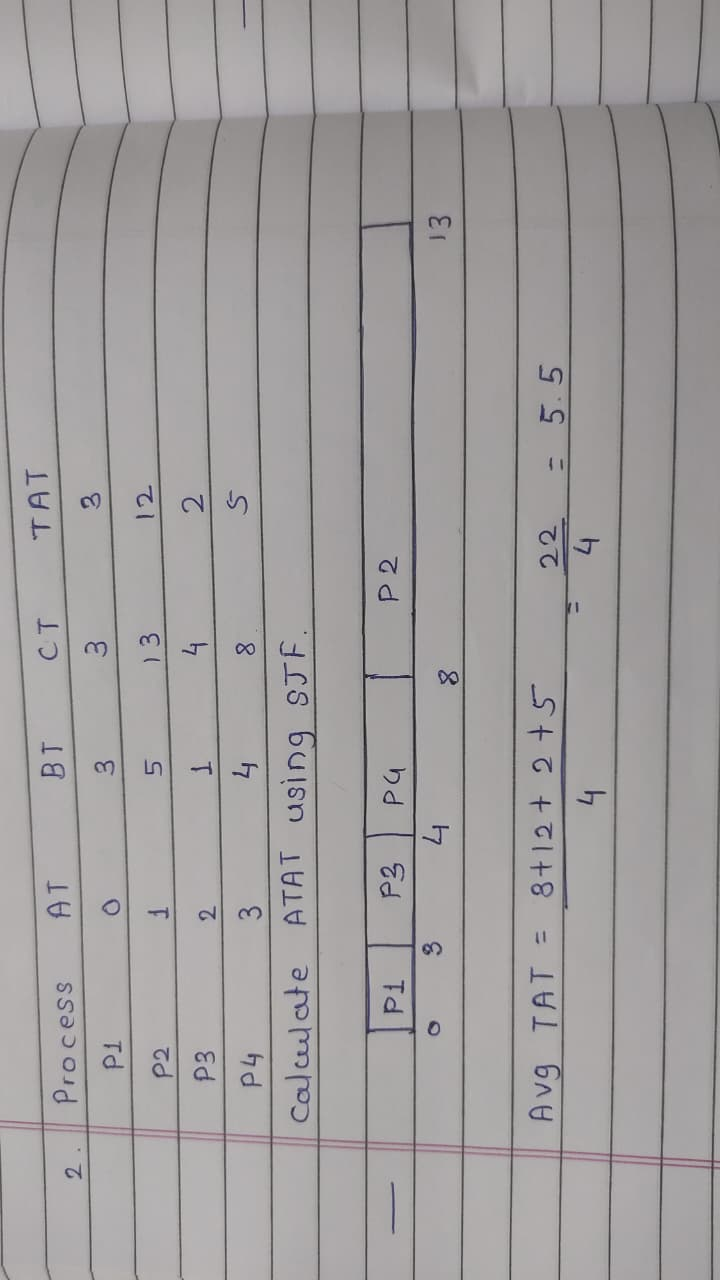 2. Process AT BT CT TAT
P1 0 3 3 3
P2 1 5 13 12
P3 2 1 4 2
P4 3 4 8 5
Calculate ATAT using SJF.
— P1 P3 P4 P2
0 3 4 8 13
Avg TAT = 8+12+2+5 = 22 = 5.5
4 4